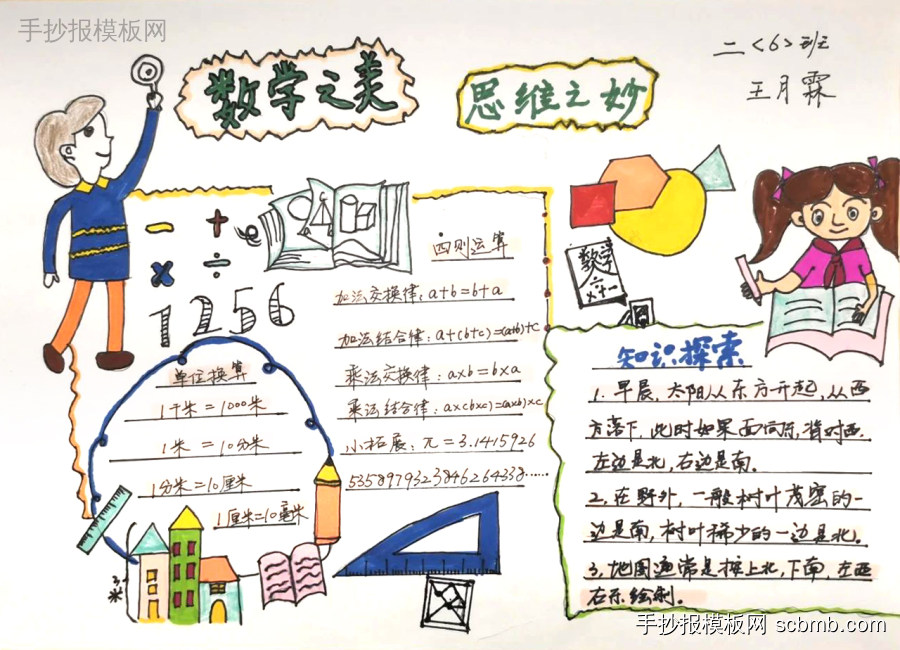 手抄报模板网
二<6>班
王月霖
数学之美
思维之妙
- +
× ÷
1256
四则运算
加法交换律:a+b=b+a
加法结合律:a+(b+c)=(a+b)+c
乘法交换律:a×b=b×a
乘法结合律:a×(b×c)=(a×b)×c
小拓展:π=3.1415926
5358979323846264338……
单位换算
1千米=1000米
1米=10分米
1分米=10厘米
1厘米=10毫米
米
数学
知识探索
1.早晨,太阳从东方升起,从西
方落下,此时如果面向东,背对西,
左边是北,右边是南。
2.在野外,一般树叶茂密的一
边是南,树叶稀少的一边是北。
3.地图通常是按上北,下南,左西
右东绘制。
手抄报模板网 scbmb.com